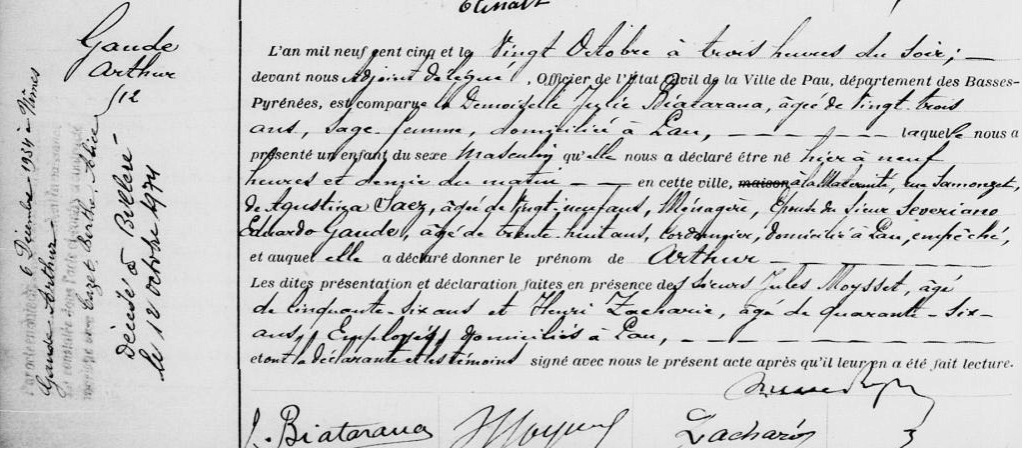 Gaude
Arthur
512
Par acte mentionné 6 Décembre 1934 à Nîmes
Gaude Arthur
Cuzet Berthe Alice
Décédé à Billère
le 12 octobre 1974
L'an mil neuf cent cinq et le Vingt Octobre à trois heures du soir; —
devant nous Adjoint délégué, Officier de l'État Civil de la Ville de Pau, département des Basses-
Pyrénées, est comparue la Demoiselle Julie Biatarana, âgée de vingt trois
ans, sage femme, domiciliée à Pau, — — — — — laquelle nous a
présenté un enfant du sexe Masculin qu'elle nous a déclaré être né hier à neuf
heures et demie du matin — — en cette ville, maison à la Maternité, rue Samonzet,
de Agustina Saez, âgée de vingt-neuf ans, Ménagère, Epouse du sieur Severiano
Eduardo Gaude, âgé de trente-huit ans, cordonnier, domicilié à Pau, empêché,
et auquel elle a déclaré donner le prénom de Arthur — — — — —
Les dites présentation et déclaration faites en présence des sieurs Jules Moysset, âgé
de cinquante-six ans et Henri Zacharie, âgé de quarante-six-
ans, Employés, domiciliés à Pau, — — — — —
et ont la déclarante et les témoins signé avec nous le présent acte après qu'il leur en a été fait lecture.
J. Biatarana Moysset Zacharie